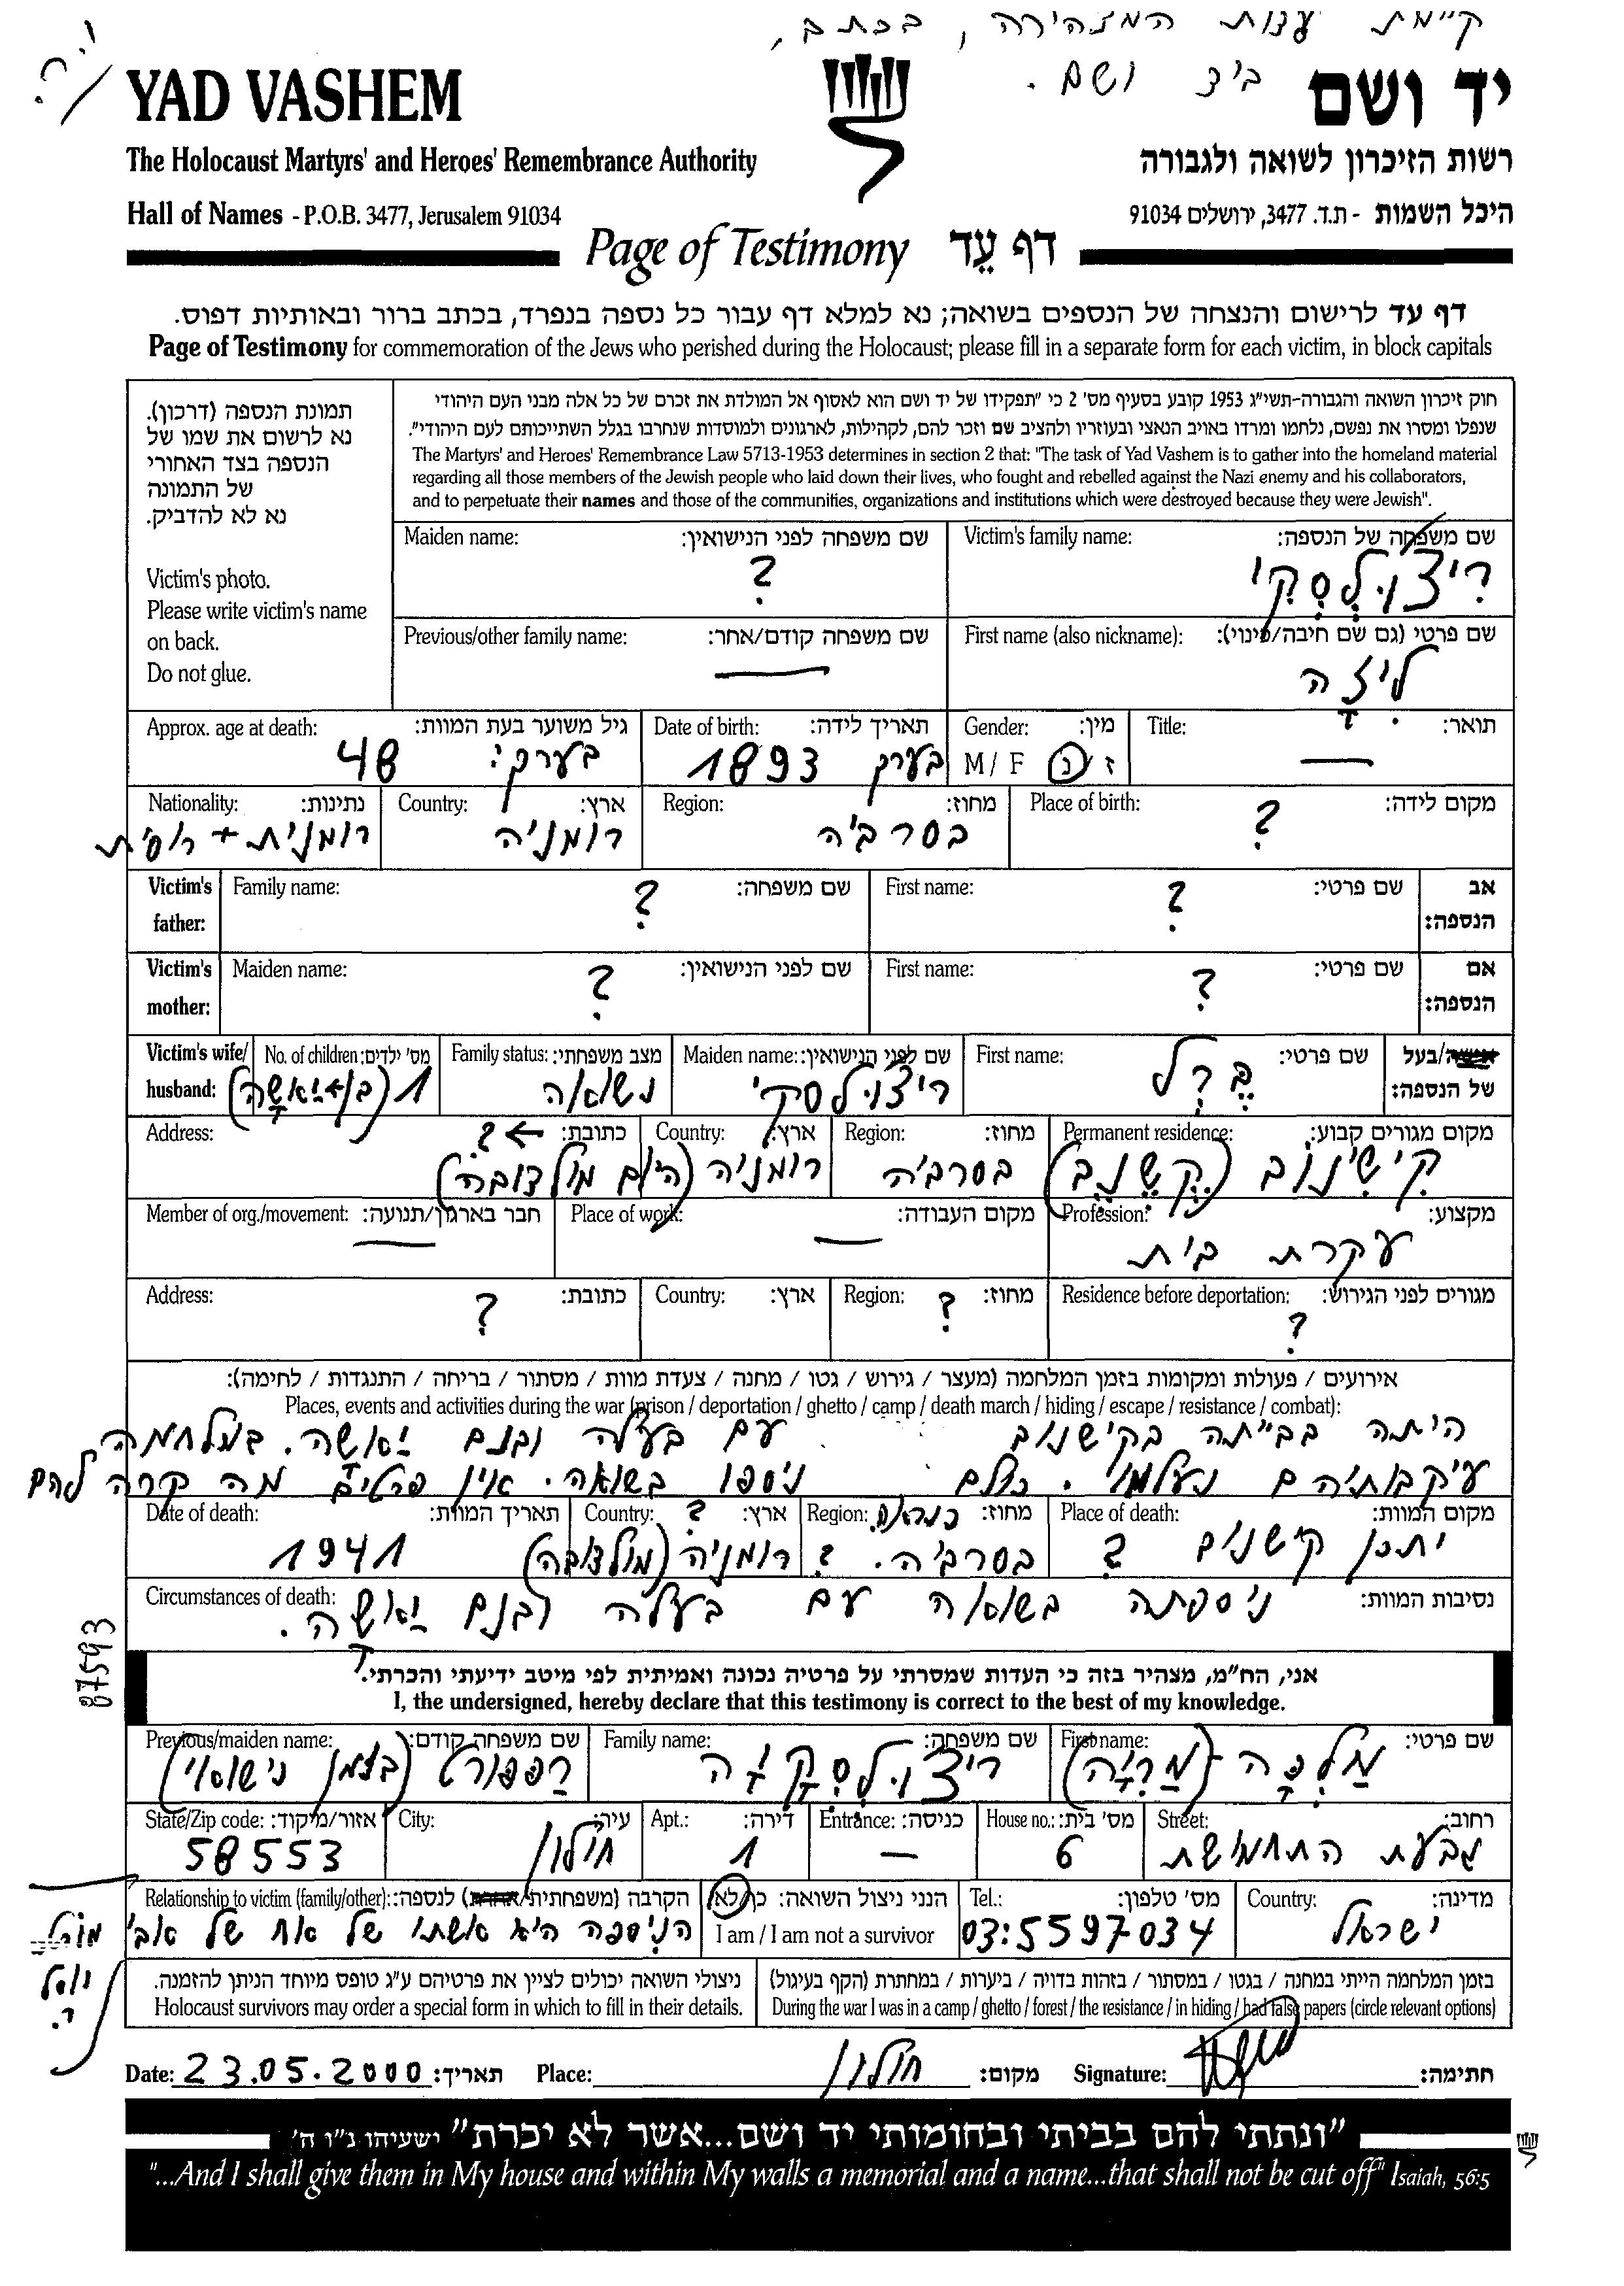 קיימת עצות המצהירה, בכתב,
ביד ושם.
YAD VASHEM
יד ושם
The Holocaust Martyrs' and Heroes' Remembrance Authority
רשות הזיכרון לשואה ולגבורה
Hall of Names - P.O.B. 3477, Jerusalem 91034
היכל השמות - ת.ד. 3477, ירושלים 91034
Page of Testimony דף עֵד
דף עד לרישום והנצחה של הנספים בשואה; נא למלא דף עבור כל נספה בנפרד, בכתב ברור ובאותיות דפוס.
Page of Testimony for commemoration of the Jews who perished during the Holocaust; please fill in a separate form for each victim, in block capitals
תמונת הנספה (דרכון).
נא לרשום את שמו של
הנספה בצד האחורי
של התמונה
נא לא להדביק.
Victim's photo.
Please write victim's name
on back.
Do not glue.
חוק זיכרון השואה והגבורה-תשי"ג 1953 קובע בסעיף מס' 2 כי "תפקידו של יד ושם הוא לאסוף אל המולדת את זכרם של כל אלה מבני העם היהודי
שנפלו ומסרו את נפשם, נלחמו ומרדו באויב הנאצי ובעוזריו ולהציב שם וזכר להם, לקהילות, לארגונים ולמוסדות שנחרבו בגלל השתייכותם לעם היהודי".
The Martyrs' and Heroes' Remembrance Law 5713-1953 determines in section 2 that: "The task of Yad Vashem is to gather into the homeland material
regarding all those members of the Jewish people who laid down their lives, who fought and rebelled against the Nazi enemy and his collaborators,
and to perpetuate their names and those of the communities, organizations and institutions which were destroyed because they were Jewish".
Victim's family name: שם משפחה של הנספה:
ריצ'ולסקי
Maiden name: שם משפחה לפני הנישואין:
?
First name (also nickname): שם פרטי (גם שם חיבה/כינוי):
ליזה
Previous/other family name: שם משפחה קודם/אחר:
—
Title: תואר:
—
Gender: מין:
M / F ז / נ
Date of birth: תאריך לידה:
בערך 1893
Approx. age at death: גיל משוער בעת המוות:
בערך: 48
Place of birth: מקום לידה:
?
Region: מחוז:
בסרביה
Country: ארץ:
רומניה
Nationality: נתינות:
רומנית + רוסית
Victim's father: אב הנספה:
First name: שם פרטי:
?
Family name: שם משפחה:
?
Victim's mother: אם הנספה:
First name: שם פרטי:
?
Maiden name: שם לפני הנישואין:
?
Victim's wife/ husband: אשה/בעל של הנספה:
First name: שם פרטי:
בֶּרֶל
Maiden name: שם לפני הנישואין:
ריצ'ולסקי
Family status: מצב משפחתי:
נשואה
No. of children: מס' ילדים:
1 (בן ← יאשה)
Permanent residence: מקום מגורים קבוע:
קישינוב (קשנב)
Region: מחוז:
בסרביה
Country: ארץ:
רומניה (היום מולדובה)
Address: כתובת:
← ?
Profession: מקצוע:
עקרת בית
Place of work: מקום העבודה:
—
Member of org./movement: חבר בארגון/תנועה:
—
Residence before deportation: מגורים לפני הגירוש:
?
Region: מחוז:
?
Country: ארץ:
Address: כתובת:
?
אירועים / פעולות ומקומות בזמן המלחמה (מעצר / גירוש / גטו / מחנה / צעדת מוות / מסתור / בריחה / התנגדות / לחימה):
Places, events and activities during the war (prison / deportation / ghetto / camp / death march / hiding / escape / resistance / combat):
היתה בבייתה בקישנוב עם בעלה ובנם יאשה. במלחמה
עיקבותיהם נעלמו. כולם ניספו בשואה. אין פרטים מה קרה להם
Place of death: מקום המוות:
יתכן קישנוב ?
Region: מחוז:
כנראה בסרביה. ?
Country: ארץ:
? רומניה (מולדובה)
Date of death: תאריך המוות:
1941
Circumstances of death: נסיבות המוות:
ניספתה בשואה עם בעלה ובנם יאשה.
87593
אני, הח"מ, מצהיר בזה כי העדות שמסרתי על פרטיה נכונה ואמיתית לפי מיטב ידיעתי והכרתי.
I, the undersigned, hereby declare that this testimony is correct to the best of my knowledge.
First name: שם פרטי:
מַלְכָּה (מַרִיָה)
Family name: שם משפחה:
ריצ'ולסקיה
Previous/maiden name: שם משפחה קודם:
רפפורט (בזמן נישואי)
Street: רחוב:
גבעת התחמושת
House no.: מס' בית:
6
Entrance: כניסה:
—
Apt.: דירה:
1
City: עיר:
חולון
State/Zip code: אזור/מיקוד:
58553
Country: מדינה:
ישראל
Tel.: מס' טלפון:
03:5597034
הנני ניצול השואה: כן/לא
I am / I am not a survivor
Relationship to victim (family/other): הקרבה (משפחתית/אחרת) לנספה:
הניספה היא אשתו של אח של אבי
בזמן המלחמה הייתי במחנה / בגטו / במסתור / בזהות בדויה / ביערות / במחתרת (הקף בעיגול)
During the war I was in a camp / ghetto / forest / the resistance / in hiding / had false papers (circle relevant options)
ניצולי השואה יכולים לציין את פרטיהם ע"ג טופס מיוחד הניתן להזמנה.
Holocaust survivors may order a special form in which to fill in their details.
Date: 23.05.2000 תאריך:
Place: חולון מקום:
Signature: חתימה:
"ונתתי להם בביתי ובחומותי יד ושם...אשר לא יכרת" ישעיהו נ"ו ה'
"...And I shall give them in My house and within My walls a memorial and a name...that shall not be cut off" Isaiah, 56:5